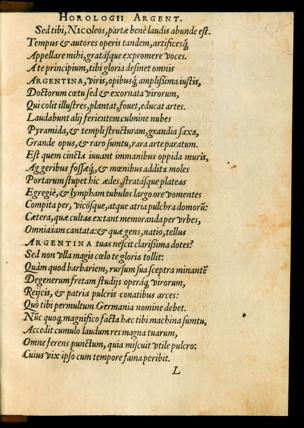 HOROLOGII ARGENT.
Sed tibi, NICOleos, partæ benè laudis abunde est.
Tempus & autores operis tandem, artificesq́;
Appellare mihi, gratásque expromere voces.
A te principium, tibi gloria desinet omnis
ARGENTINA, viris, opibusq́; amplissima iustis,
Doctorum cœtu sed & exornata virorum,
Qui colit illustres, plantat, fouet, educat artes.
Laudabunt alij ferientem culmine nubes
Pyramida, & templi structuram, grandia saxa,
Grande opus, & raro sumtu, rara arte paratum.
Est quem cincta iuuant immanibus oppida muris,
Aggeribus fossæq́;, & mœnibus addita moles
Portarum stupet hic ædes, stratásque plateas
Egregiè, & lympham tubulos largo ore vomentes
Compita per, vicósque, atque atria pulchra domorũ:
Cætera, quæ cultas extant memoranda per vrbes,
Omnia iam cantata: & quæ gens, natio, tellus
ARGENTINA tuas nescit clarissima dotes?
Sed non vlla magis cælo te gloria tollit:
Quàm quod barbariem, rursum sua sceptra minantẽ
Degenerum fretam studijs operáq; virorum,
Reijcis, & patria pulcris conatibus arces:
Quò tibi permultum Germania nomine debet.
Nũc quoq; magnifico facta hæc tibi machina sumtu,
Accedit cumulo laudum res magna tuarum,
Omne ferens punctum, quia miscuit vtile pulcro:
Cuius vix ipso cum tempore fama peribit.
L